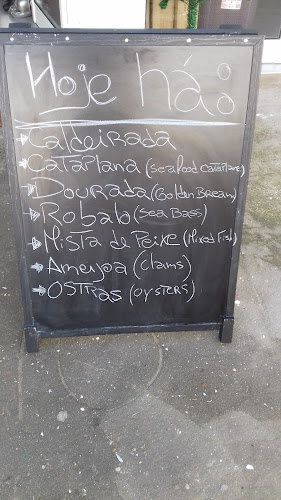 Hoje há:
Caldeirada
Cataplana (seafood Cataplana)
Dourada (Golden Bream)
Robalo (Sea Bass)
Mista de Peixe (Mixed Fish)
Ameijoa (Clams)
OSTRAS (OYSTERS)